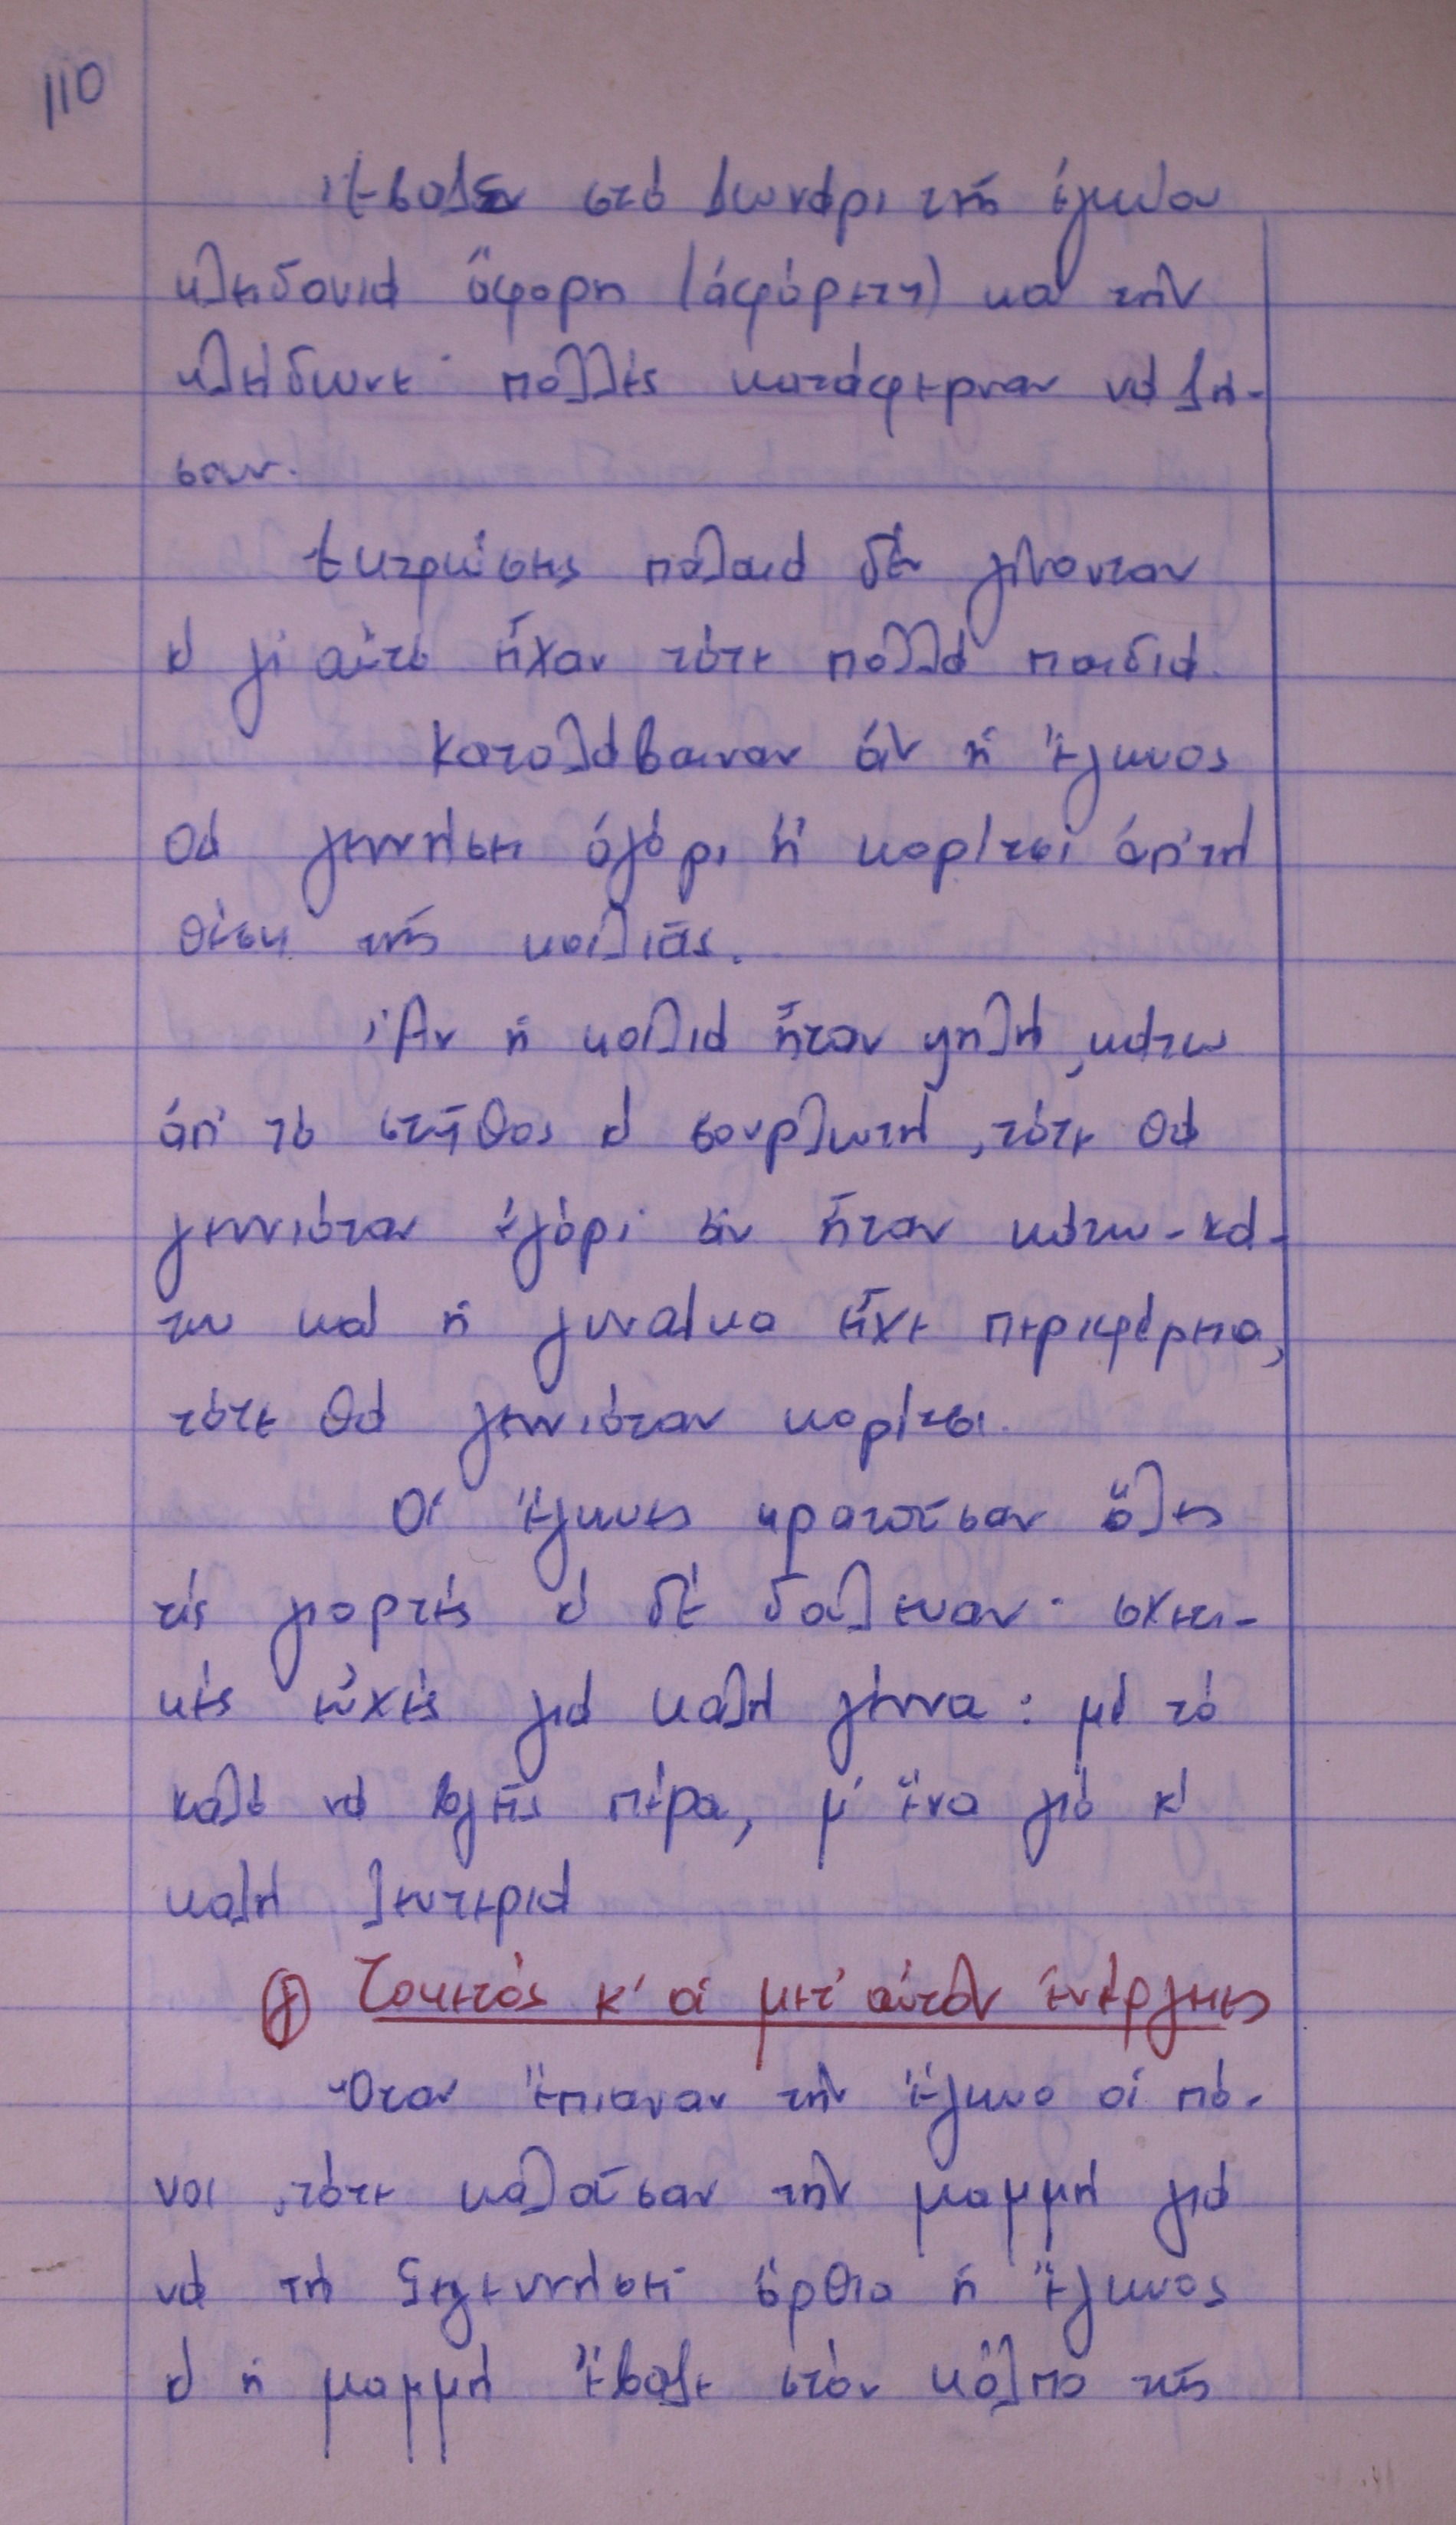 110
Ἔβαζαν στό ζωνάρι τῆς ἐγκύου
κλειδονιά ἄφορη (ἀφόρετη) καί τήν
κλείδωνε· πολλές κατάφερναν νά ζή-
σουν.
Ἐκτρώσεις παλαιά δέν γίνονταν
κ' γι' αὐτό εἶχαν τότε πολλά παιδιά.
Καταλάβαιναν ἄν ἡ ἔγκυος
θά γεννήσει ἀγόρι ἤ κορίτσι ἀπ' τή
θέση τῆς κοιλιᾶς.
Ἄν ἡ κοιλιά ἦταν ψηλή, κάτω
ἀπ' τό στῆθος κ' σουρλωτή, τότε θά
γεννιόταν ἀγόρι· ἄν ἦταν κάτω-κά-
τω καί ἡ γυναίκα εἶχε περιφέρεια,
τότε θά γεννιόταν κορίτσι.
Οἱ ἔγκυες κρατοῦσαν ὅλες
τίς γιορτές κ' δέ δούλευαν· σχετι-
κές εὐχές γιά καλή γέννα: μέ τό
καλό νά βγεῖς πέρα, μ' ἕνα γιό κ'
καλή λευτεριά
γ) Τοκετός κ' οἱ μετ' αὐτόν ἐνέργειες
Ὅταν ἔπιαναν τήν ἔγκυο οἱ πό-
νοι, τότε καλοῦσαν τήν μαμμή γιά
νά τή ξεγεννήσει· ὄρθια ἡ ἔγκυος
κ' ἡ μαμμή ἔβαζε στόν κόλπο τῆς